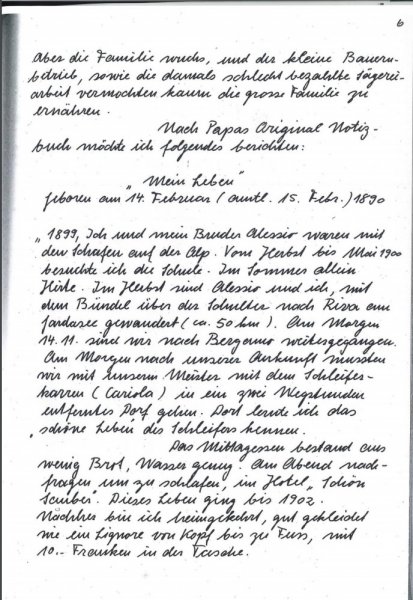 6
Aber die Familie wuchs, und der kleine Bauern-
betrieb, sowie die damals schlecht bezahlte Sägerei-
arbeit vermochten kaum die grosse Familie zu
ernähren.
Nach Papas Original Notiz-
buch möchte ich folgendes berichten:
"Mein Leben"
geboren am 14. Februar (amtl. 15. Febr.) 1890
"1899, Ich und mein Bruder Alessio waren mit
den Schafen auf der Alp. Vom Herbst bis Mai 1900
besuchte ich die Schule. Im Sommer allein
Hirte. Im Herbst sind Alessio und ich, mit
dem Bündel über der Schulter nach Riva am
Gardasee gewandert (ca. 50 km). Am Morgen
14.11. sind wir nach Bergamo weitergegangen.
Am Morgen nach unserer Ankunft mussten
wir mit unserm Meister mit dem Schleifer-
karren (Cariola) in ein zwei Wegstunden
entferntes Dorf gehen. Dort lernte ich das
"schöne Leben" des Schleifers kennen.
Das Mittagessen bestand aus
wenig Brot, Wasser genug. Am Abend nach-
fragen um zu schlafen, im Hotel "Schön
Dieses Leben ging bis 1902.
Nachher bin ich heimgekehrt, gut gekleidet
wie ein Signore von Kopf bis zu Fuss, mit
10.- Franken in der Tasche.